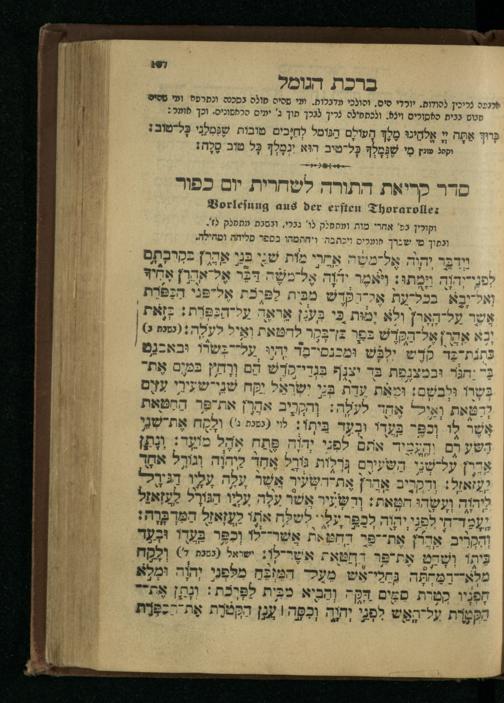 187
ברכת הגומל
ארבעה צריכין להודות, יורדי הים, והולכי מדברות, ומי שהיה חולה בסכנה ונתרפא ומי שהיה
חבוש בבית האסורים ויצא, ולכתחילה צריך לברך תוך ג׳ ימים הראשונים. וכך אומר:
בָּרוּךְ אַתָּה יְיָ אֱלֹהֵינוּ מֶלֶךְ הָעוֹלָם הַגּוֹמֵל לְחַיָּבִים טוֹבוֹת שֶׁגְּמָלַנִי כָּל־טוֹב:
וקהל עונין מִי שֶׁגְּמָלְךָ כָּל־טוּב הוּא יִגְמָלְךָ כָּל טוֹב סֶלָה:
סדר קריאת התורה לשחרית יום כפור
Vorlesung aus der ersten Thorarolle:
וקורין בפ׳ אחרי מות ומתחלק לו׳ גברי, ובשבת מתחלק לז׳.
ובתוך מי שברך אומרים ויכתבהו ויחתמהו בספר סליחה ומחילה.
וַיְדַבֵּר יְהוָֹה אֶל־מֹשֶׁה אַחֲרֵי מוֹת שְׁנֵי בְּנֵי אַהֲרֹן בְּקָרְבָתָם
לִפְנֵי־יְהוָֹה וַיָּמֻתוּ: וַיֹּאמֶר יְהוָֹה אֶל־מֹשֶׁה דַּבֵּר אֶל־אַהֲרֹן אָחִיךָ
וְאַל־יָבֹא בְכָל־עֵת אֶל־הַקֹּדֶשׁ מִבֵּית לַפָּרֹכֶת אֶל־פְּנֵי הַכַּפֹּרֶת
אֲשֶׁר עַל־הָאָרֹן וְלֹא יָמוּת כִּי בֶּעָנָן אֵרָאֶה עַל־הַכַּפֹּרֶת: בְּזֹאת
יָבֹא אַהֲרֹן אֶל־הַקֹּדֶשׁ בְּפַר בֶּן־בָּקָר לְחַטָּאת וְאַיִל לְעֹלָה: (בשבת ב׳)
כְּתֹנֶת־בַּד קֹדֶשׁ יִלְבָּשׁ וּמִכְנְסֵי־בַד יִהְיוּ עַל־בְּשָׂרוֹ וּבְאַבְנֵט
בַּד יַחְגֹּר וּבְמִצְנֶפֶת בַּד יִצְנֹף בִּגְדֵי־קֹדֶשׁ הֵם וְרָחַץ בַּמַּיִם אֶת־
בְּשָׂרוֹ וּלְבֵשָׁם: וּמֵאֵת עֲדַת בְּנֵי יִשְׂרָאֵל יִקַּח שְׁנֵי־שְׂעִירֵי עִזִּים
לְחַטָּאת וְאַיִל אֶחָד לְעֹלָה: וְהִקְרִיב אַהֲרֹן אֶת־פַּר הַחַטָּאת
אֲשֶׁר לוֹ וְכִפֶּר בַּעֲדוֹ וּבְעַד בֵּיתוֹ: לוי (בשבת ג׳) וְלָקַח אֶת־שְׁנֵי
הַשְּׂעִירִם וְהֶעֱמִיד אֹתָם לִפְנֵי יְהוָֹה פֶּתַח אֹהֶל מוֹעֵד: וְנָתַן
אַהֲרֹן עַל־שְׁנֵי הַשְּׂעִירִם גֹּרָלוֹת גּוֹרָל אֶחָד לַיהוָֹה וְגוֹרָל אֶחָד
לַעֲזָאזֵל: וְהִקְרִיב אַהֲרֹן אֶת־הַשָּׂעִיר אֲשֶׁר עָלָה עָלָיו הַגּוֹרָל
לַיהוָֹה וְעָשָׂהוּ חַטָּאת: וְהַשָּׂעִיר אֲשֶׁר עָלָה עָלָיו הַגּוֹרָל לַעֲזָאזֵל
יָעֳמַד־חַי לִפְנֵי יְהוָֹה לְכַפֵּר עָלָיו לְשַׁלַּח אֹתוֹ לַעֲזָאזֵל הַמִּדְבָּרָה:
וְהִקְרִיב אַהֲרֹן אֶת־פַּר הַחַטָּאת אֲשֶׁר־לוֹ וְכִפֶּר בַּעֲדוֹ וּבְעַד
בֵּיתוֹ וְשָׁחַט אֶת־פַּר הַחַטָּאת אֲשֶׁר־לוֹ: ישראל (בשבת ד׳) וְלָקַח
מְלֹא־הַמַּחְתָּה גַּחֲלֵי־אֵשׁ מֵעַל הַמִּזְבֵּחַ מִלִּפְנֵי יְהוָֹה וּמְלֹא
חָפְנָיו קְטֹרֶת סַמִּים דַּקָּה וְהֵבִיא מִבֵּית לַפָּרֹכֶת: וְנָתַן אֶת־
הַקְּטֹרֶת עַל־הָאֵשׁ לִפְנֵי יְהוָֹה וְכִסָּה׀ עֲנַן הַקְּטֹרֶת אֶת־הַכַּפֹּרֶת